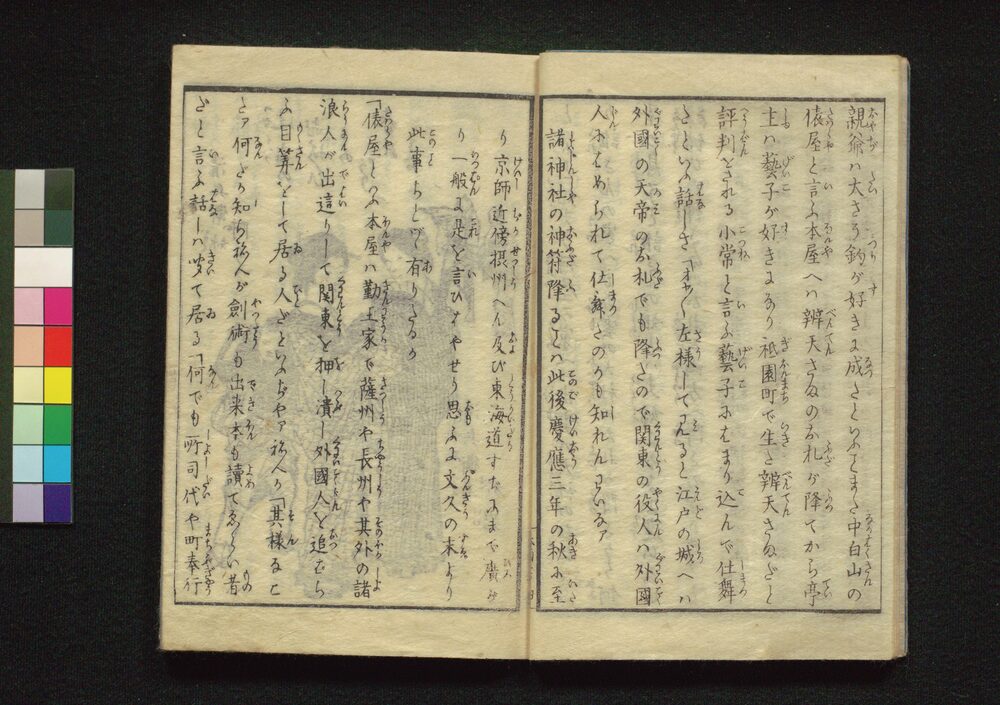 親爺ハ大さう釣が好きま成たといふことまた中白山の
俵屋と言ふ本屋へハ辨天さぬのお札が降てから亭
主ハ藝子が好きまあり祇園町で生た辨天さぬだと
評判される小常と言ふ藝子にはまり込んで仕舞
たといふ話しさ「オヽ左様して見ると江戸の城へハ
外國の天帝のお札でも降たので関東の役人ハ外國
人にはめられて仕舞たのかも知れんわいなア
諸神社の神符降ることハ此後慶應三年の秋に至
り京師近傍摂州へん及び東海道すぢにまで賣
り一般に是を言ひはやせり思ふに文久の末より
此事もとづく有りたるか
「俵屋といふ本屋ハ勤王家で薩州や長州や其外の諸
浪人が出這りして関東を押し潰し外國人を追はら
ふ目算をして居る人だといふぢやア私人が「其様なこ
とア何だか知ら私人が劍術も出来本も讀てゑらい者
だと言ふ話しハ聞て居る「何でも所司代や町奉行